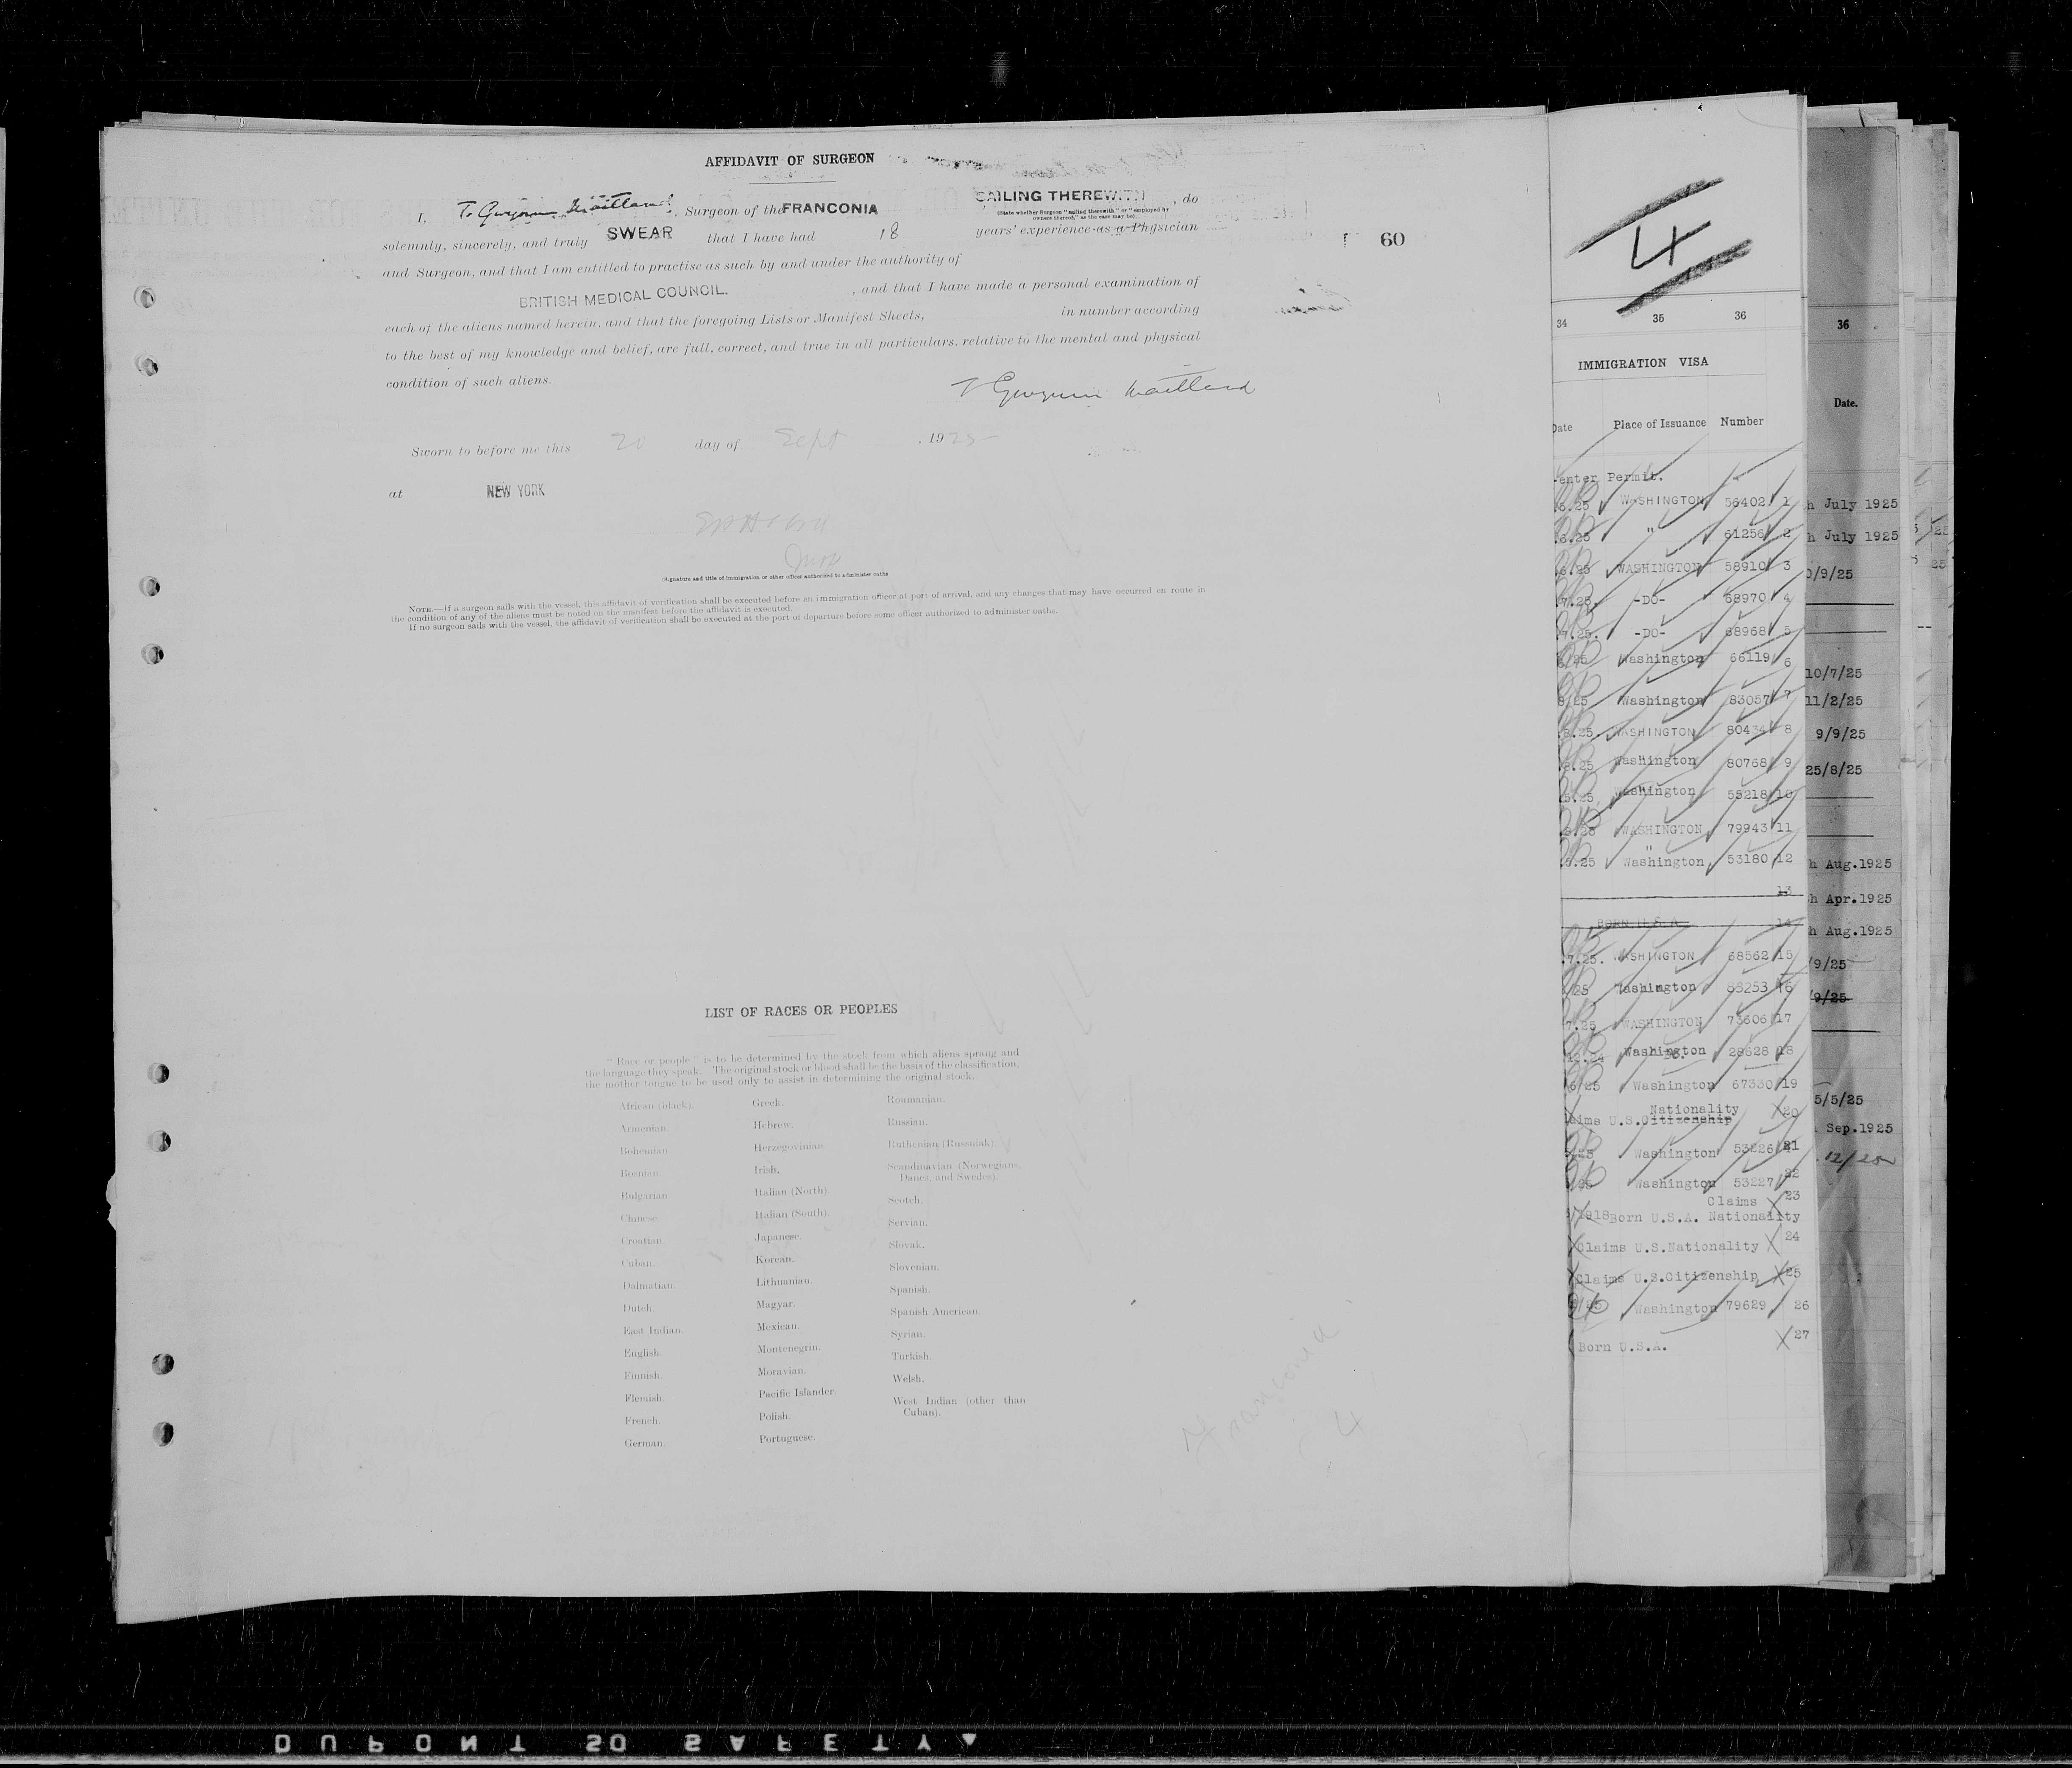 AFFIDAVIT OF SURGEON
I, T. Gwynne Maitland, Surgeon of the FRANCONIA SAILING THEREWITH, do
(State whether Surgeon "sailing therewith" or "employed by
owners thereof," as the case may be)
solemnly, sincerely, and truly SWEAR that I have had 18 years' experience as a Physician
and Surgeon, and that I am entitled to practise as such by and under the authority of
BRITISH MEDICAL COUNCIL. , and that I have made a personal examination of
each of the aliens named herein, and that the foregoing Lists or Manifest Sheets, in number according
to the best of my knowledge and belief, are full, correct, and true in all particulars, relative to the mental and physical
condition of such aliens.
T Gwynne Maitland
Sworn to before me this 20 day of Sept , 1925
at NEW YORK
Insp
(Signature and title of immigration or other officer authorized to administer oaths
NOTE.—If a surgeon sails with the vessel, this affidavit of verification shall be executed before an immigration officer at port of arrival, and any changes that may have occurred en route in
the condition of any of the aliens must be noted on the manifest before the affidavit is executed.
If no surgeon sails with the vessel, the affidavit of verification shall be executed at the port of departure before some officer authorized to administer oaths.
60
LIST OF RACES OR PEOPLES
"Race or people" is to be determined by the stock from which aliens sprang and
the language they speak. The original stock or blood shall be the basis of the classification,
the mother tongue to be used only to assist in determining the original stock.
African (black).
Armenian.
Bohemian.
Bosnian.
Bulgarian.
Chinese.
Croatian.
Cuban.
Dalmatian.
Dutch.
East Indian.
English.
Finnish.
Flemish.
French.
German.
Greek.
Hebrew.
Herzegovinian.
Irish.
Italian (North).
Italian (South).
Japanese.
Korean.
Lithuanian.
Magyar.
Mexican.
Montenegrin.
Moravian.
Pacific Islander.
Polish.
Portuguese.
Roumanian.
Russian.
Ruthenian (Russniak).
Scandinavian (Norwegians,
Danes, and Swedes).
Scotch.
Servian.
Slovak.
Slovenian.
Spanish.
Spanish American.
Syrian.
Turkish.
Welsh.
West Indian (other than
Cuban).
Franconia
4
4
34 35 36
IMMIGRATION VISA
Date Place of Issuance Number
enter Permit.
.6.25 WASHINGTON 56402 1
.6.25 " 61256 2
.6.25 WASHINGTON 58910 3
.7.25. -DO- 68970 4
.7.25. -DO- 68968 5
/25 Washington 66119 6
8/25 Washington 83057 7
.8.25. WASHINGTON 80434 8
.8.25 Washington 80768 9
.5.25. Washington 55218 10
.8.25 WASHINGTON 79943 11
"
.5.25 Washington 53180 12
13
BORN U.S.A 14
.7.25. WASHINGTON 68562 15
/25 Washington 83253 16
7.25 WASHINGTON 73606 17
12.24 Washington 28628 18
6/25 Washington 67330 19
Nationality
aims U.S.Citizenship 20
/25 Washington 53226 21
/25 Washington 53227 22
Claims 23
/1918 Born U.S.A. Nationality
Claims U.S.Nationality 24
Claims U.S.Citizenship 25
/25 Washington 79629 26
Born U.S.A. 27
36
Date.
h July 1925
h July 1925
0/9/25
10/7/25
11/2/25
9/9/25
25/8/25
h Aug.1925
h Apr.1925
h Aug.1925
/9/25
/9/25
5/5/25
Sep.1925
12/25
25
25
DUPONT SO SAFETY